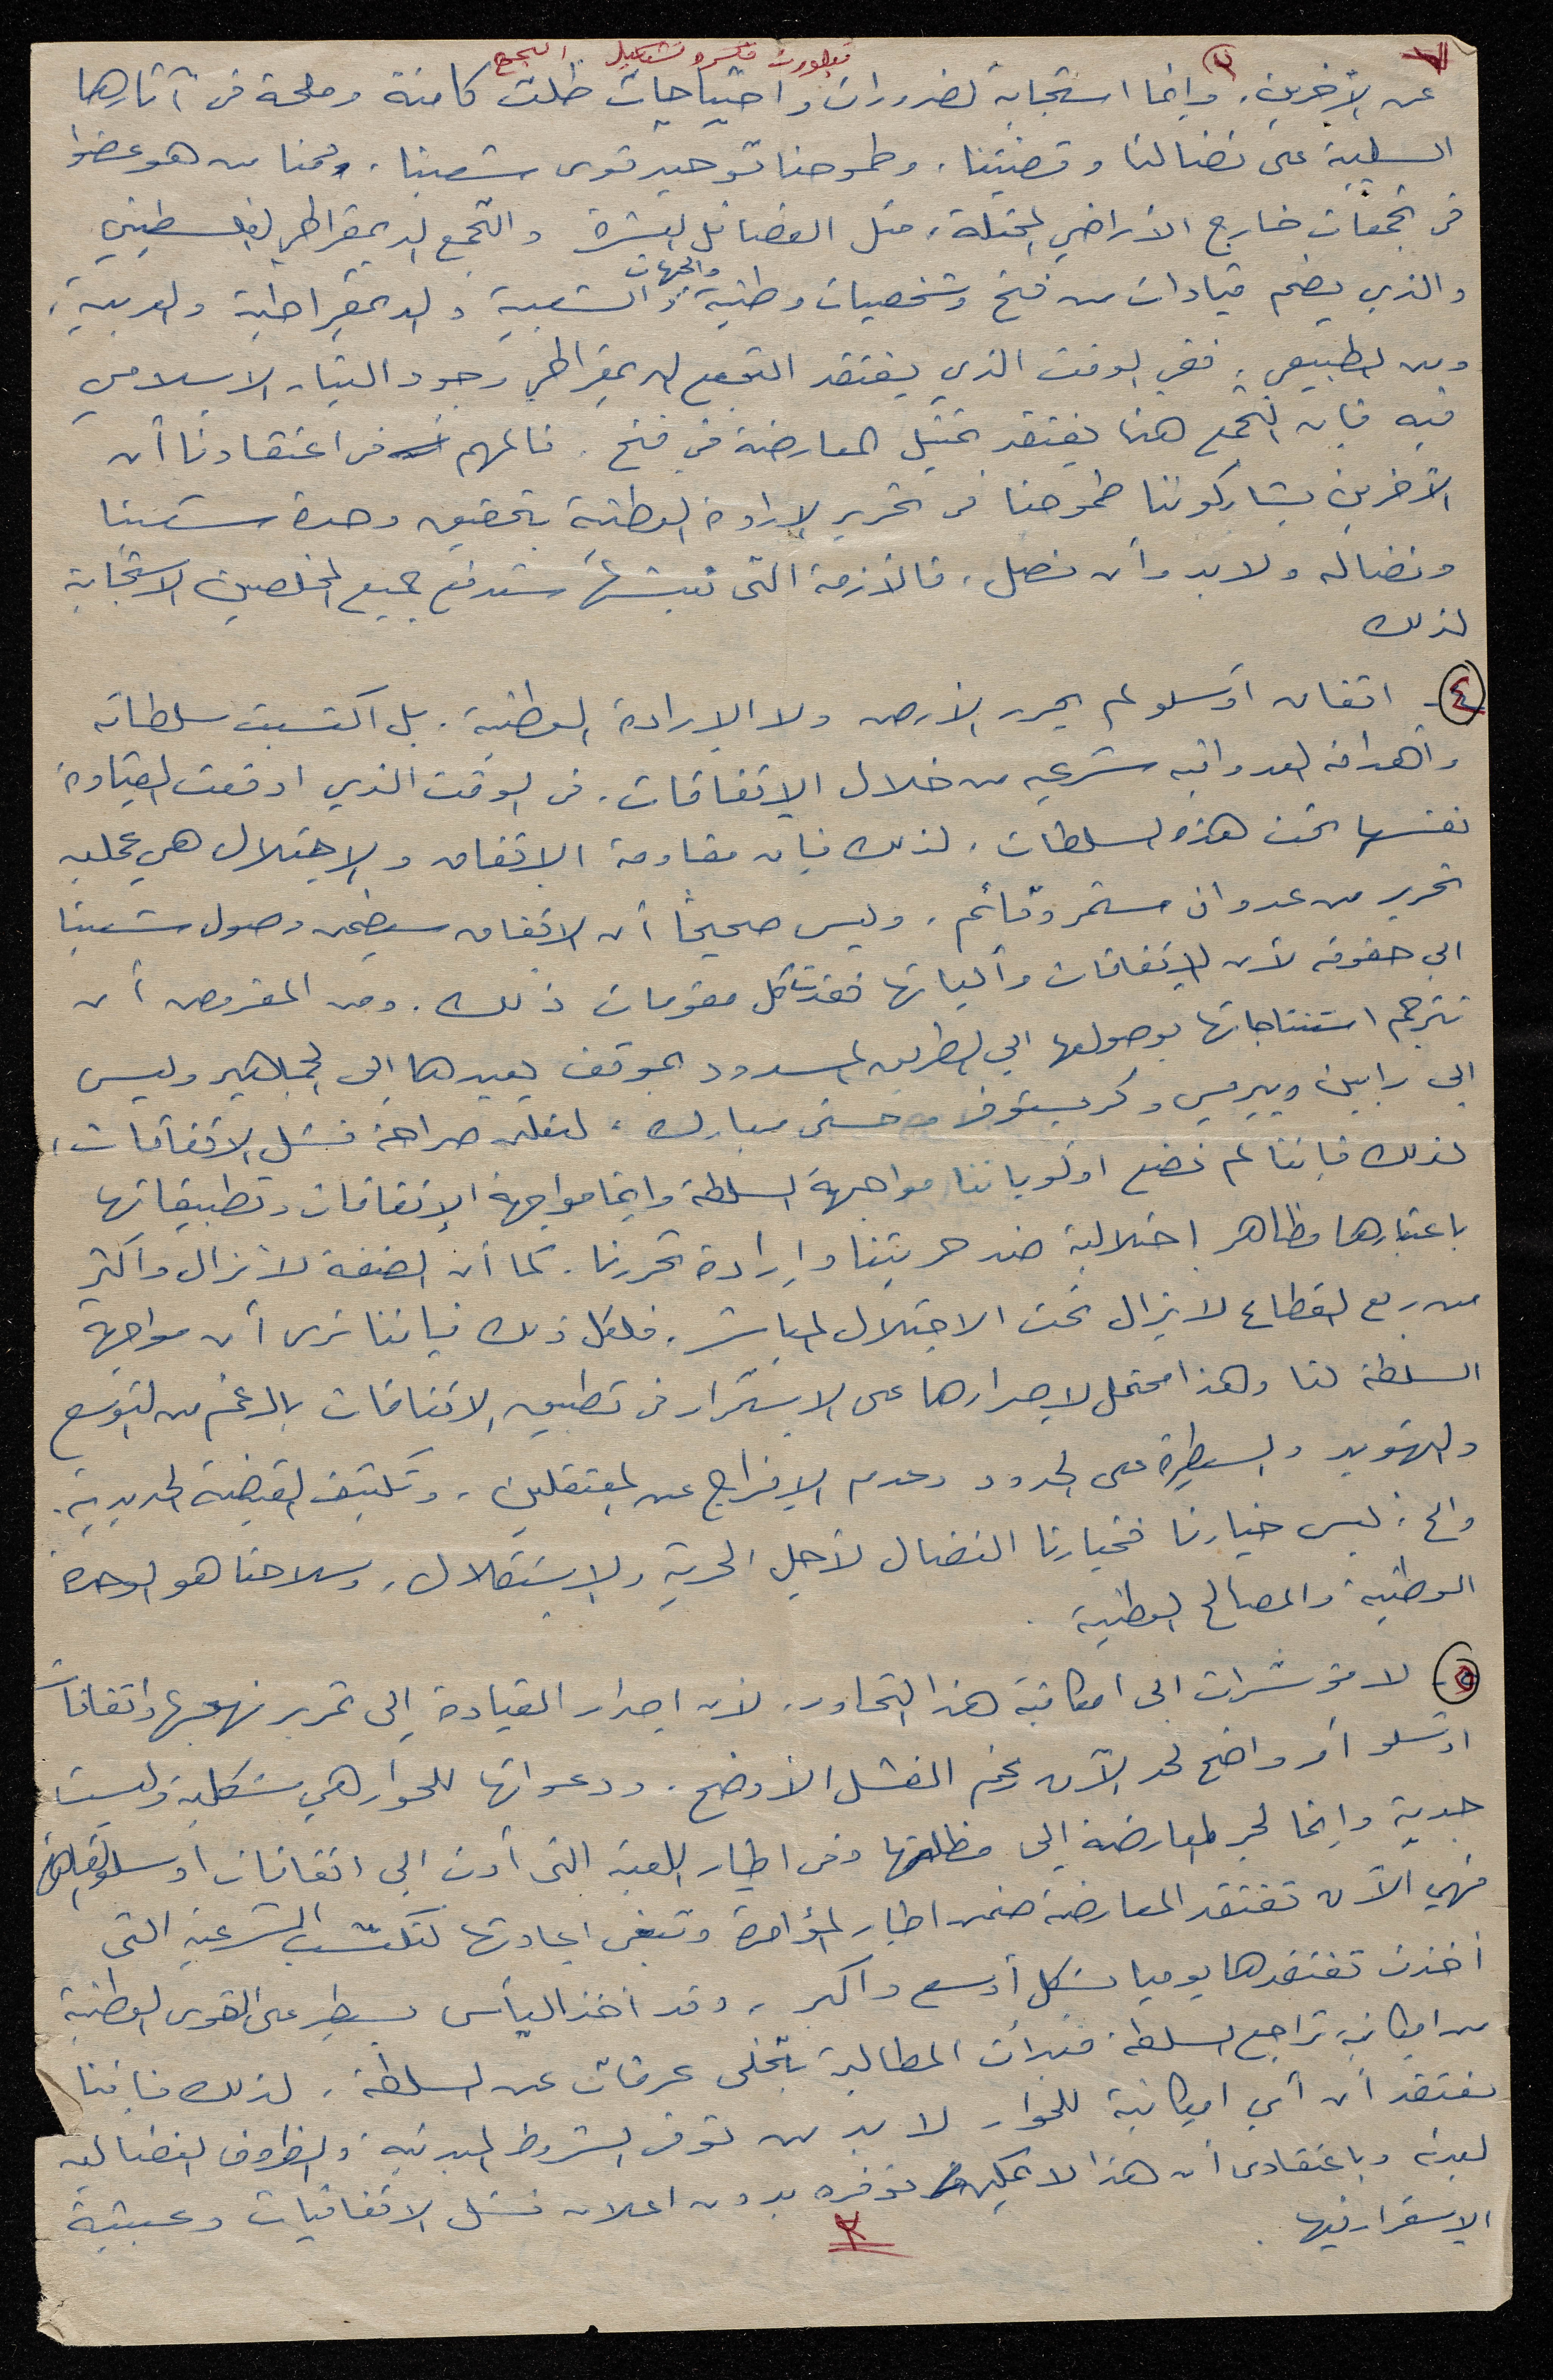 تبلورت فكرة تشكيل التجمع
عن الآخرين، وإنما استجابة لضرورات واحتياجات ظلت كامنة وملحة في آثارها
السلبية على نضالنا وقضيتنا، وطموحنا توحيد قوى شعبنا، ومنا من هو عضوا
في تجمعات خارج الأراضي المحتلة، مثل الفصائل العشرة والتجمع الديمقراطي الفلسطيني
والجبهات
والذي يضم قيادات من فتح وشخصيات وطنية والشعبية والديمقراطية والعربية،
ومن الطبيعي، ففي الوقت الذي يفتقد التجمع الديمقراطي وجود التيار الاسلامي
فيه فإن التجمع هنا يفتقد تمثيل المعارضة في فتح. فالمهم في اعتقادنا أن
الآخرين يشاركوننا طموحنا في تحرير الإرادة الوطنية بتحقيق وحدة شعبنا
ونضاله ولا بد وأن نصل، فالأزمة التي نعيشها ستدفع جميع المخلصين الاستجابة
لذلك
٤- اتفاق أوسلو لم يحرر الأرض ولا الإرادة الوطنية. بل اكتسبت سلطاته
وأهدافه العدوانيه شرعيه من خلال الإتفاقات، في الوقت الذي اوقعت القيادة
نفسها تحت هذه السلطات، لذلك فإن مقاومة الاتفاق والإحتلال هي عمليه
تحرير من عدوان مستمر وقائم، وليس صحيحاً أن الاتفاق سيضمن وصول شعبنا
الى حقوقه لأن الإتفاقات وآلياتها فقدت كل مقومات ذلك. ومن المفروض أن
تترجم استنتاجاتها بوصولها الى الطريق المسدود بموقف يعيدها إلى الجماهير وليس
الى رابين وبيرس وكريستوفر وحسني مبارك، لتعلن صراحة فشل الاتفاقات،
لذلك فإننا لم نضع اولوياتنا مواجهة السلطة وإنما مواجهة الإتفاقات وتطبيقاتها
باعتبارها مظاهر إحتلالية ضد حريتنا وإرادة تحررنا. كما أن الضفة لا تزال وأكثر
من ربع القطاع لا يزال تحت الاحتلال المباشر، فلكل ذلك فإننا نرى أن مواجهة
السلطة لنا وهذا محتمل لإصرارها على الإستمرار في تطبيق الاتفاقات بالرغم من التوسع
والتهويد والسيطرة على الحدود وعدم الإفراج عن المعتقلين، وتكثيف القبضة الحديدية.
والخ، ليس خيارنا فخيارنا النضال لأجل الحرية والإستقلال، وسلاحنا هو الوحدة
الوطنية والمصالح الوطنية.
٥- لا مؤشرات الى امكانية هذا التحاور، لأن إصرار القيادة إلى تمرير نهجها واتفاقات
اوسلو أمر واضح لحد الآن رغم الفشل الأوضح. ودعواتها للحوار هي شكلية وليست
جدية وإنما لجر المعارضة إلى مظلتها وفي اطار اللعبة التي أدت الى اتفاقات أوسلو
فهي الآن تفتقد المعارضة ضمن اطار المؤامرة وتبغي اعادتها لتكتسب الشرعية التي
أخذت تفتقدها يوميا بشكل أوسع واكبر، وقد أخذ اليأس يسيطر على القوى الوطنية
من امكانية تراجع السلطة، فبدأت المطالبة بتخلي عرفات عن السلطة، لذلك فإننا
نعتقد أن أي امكانية للحوار لا بد من توفر الشروط المبدئيه، والظروف النضاليه
لبدئه وباعتقادى أن هذا لا يمكن توفره بدون اعلان فشل الاتفاقيات وعبثية
الإستمرار فيها.
٢